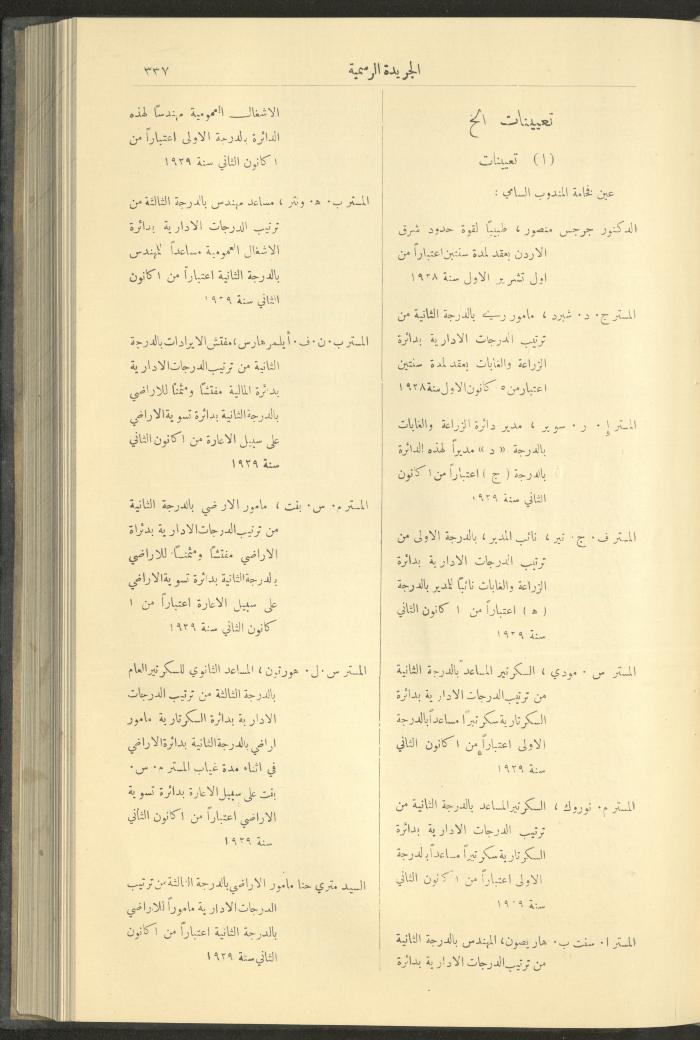 الجريدة الرسمية
٣٣٧
تعيينات الخ
(١) تعيينات
عين فخامة المندوب السامي :
الدكتور جرجس منصور ، طبيبًا لقوة حدود شرق
الاردن بعقد لمدة سنتين اعتباراً من
اول تشرير الاول سنة ١٩٢٨
المستر ج . د . شبرد ، مامور ري بالدرجة الثانية من
ترتيب الدرجات الادارية بدائرة
الزراعة والغابات بعقد لمدة سنتين
اعتبار من ٥ كانون الاول سنة ١٩٢٨
المستر إ . ر . سوير ، مدير دائرة الزراعة والغابات
بالدرجة « د » مديراً لهذه الدائرة
بالدرجة ( ج ) اعتباراً من ١ كانون
الثاني سنة ١٩٢٩
المستر ف . ج . نير ، نائب المدير ، بالدرجة الاولى من
ترتيب الدرجات الادارية بدائرة
الزراعة والغابات نائبًا للمدير بالدرجة
( ه ) اعتباراً من ١ كانون الثاني
سنة ١٩٢٩
المستر س . مودي ، السكرتير المساعد بالدرجة الثانية
من ترتيب الدرجات الادارية بدائرة
السكرتارية سكرتيرًا مساعداً بالدرجة
الاولى اعتباراً من ١ كانون الثاني
سنة ١٩٢٩
المستر م . نوروك ، السكرتير المساعد بالدرجة الثانية من
ترتيب الدرجات الادارية بدائرة
السكرتارية سكرتيراً مساعداً بالدرجة
الاولى اعتباراً من ١ كانون الثاني
سنة ١٩٢٩
المستر ا . سنت ب . هاريصون ، المهندس بالدرجة الثانية
من ترتيب الدرجات الادارية بدائرة
الاشغال العمومية مهندسًا لهذه
الدائرة بالدرجة الاولى اعتباراً من
١ كانون الثاني سنة ١٩٢٩
المستر ب . ه . ونتر ، مساعد مهندس بالدرجة الثالثة من
ترتيب الدرجات الادارية بدائرة
الاشغال العمومية مساعداً للمهندس
بالدرجة الثانية اعتباراً من ١ كانون
الثاني سنة ١٩٢٩
المستر ب . ن . ف . أيلمر هارس ، مفتش الايرادات بالدرجة
الثانية من ترتيب الدرجات الادارية
بدائرة المالية مفتشًا ومثمنًا للاراضي
بالدرجة الثانية بدائرة تسوية الاراضي
على سبيل الاعارة من ١ كانون الثاني
سنة ١٩٢٩
المستر م . س . بفت ، مامور الاراضي بالدرجة الثانية
من ترتيب الدرجات الادارية بدئراة
الاراضي مفتشًا ومثمنًا للاراضي
بالدرجة الثانية بدائرة تسوية الاراضي
على سبيل الاعارة اعتباراً من ١
كانون الثاني سنة ١٩٢٩
المستر س . ل . هورتين ، المساعد الثانوي للسكرتير العام
بالدرجة الثالثة من ترتيب الدرجات
الادارية بدائرة السكرتارية مامور
اراضي بالدرجة الثانية بدائرة الاراضي
في اثناء مدة غياب المستر م . س .
بفت على سبيل الاعارة بدائرة تسوية
الاراضي اعتباراً من ١ كانون الثاني
سنة ١٩٢٩
السيد متري حنا مأمور الاراضي بالدرجة الثالثة من ترتيب
الدرجات الادارية ماموراً للاراضي
بالدرجة الثانية اعتباراً من ١ كانون
الثاني سنة ١٩٢٩